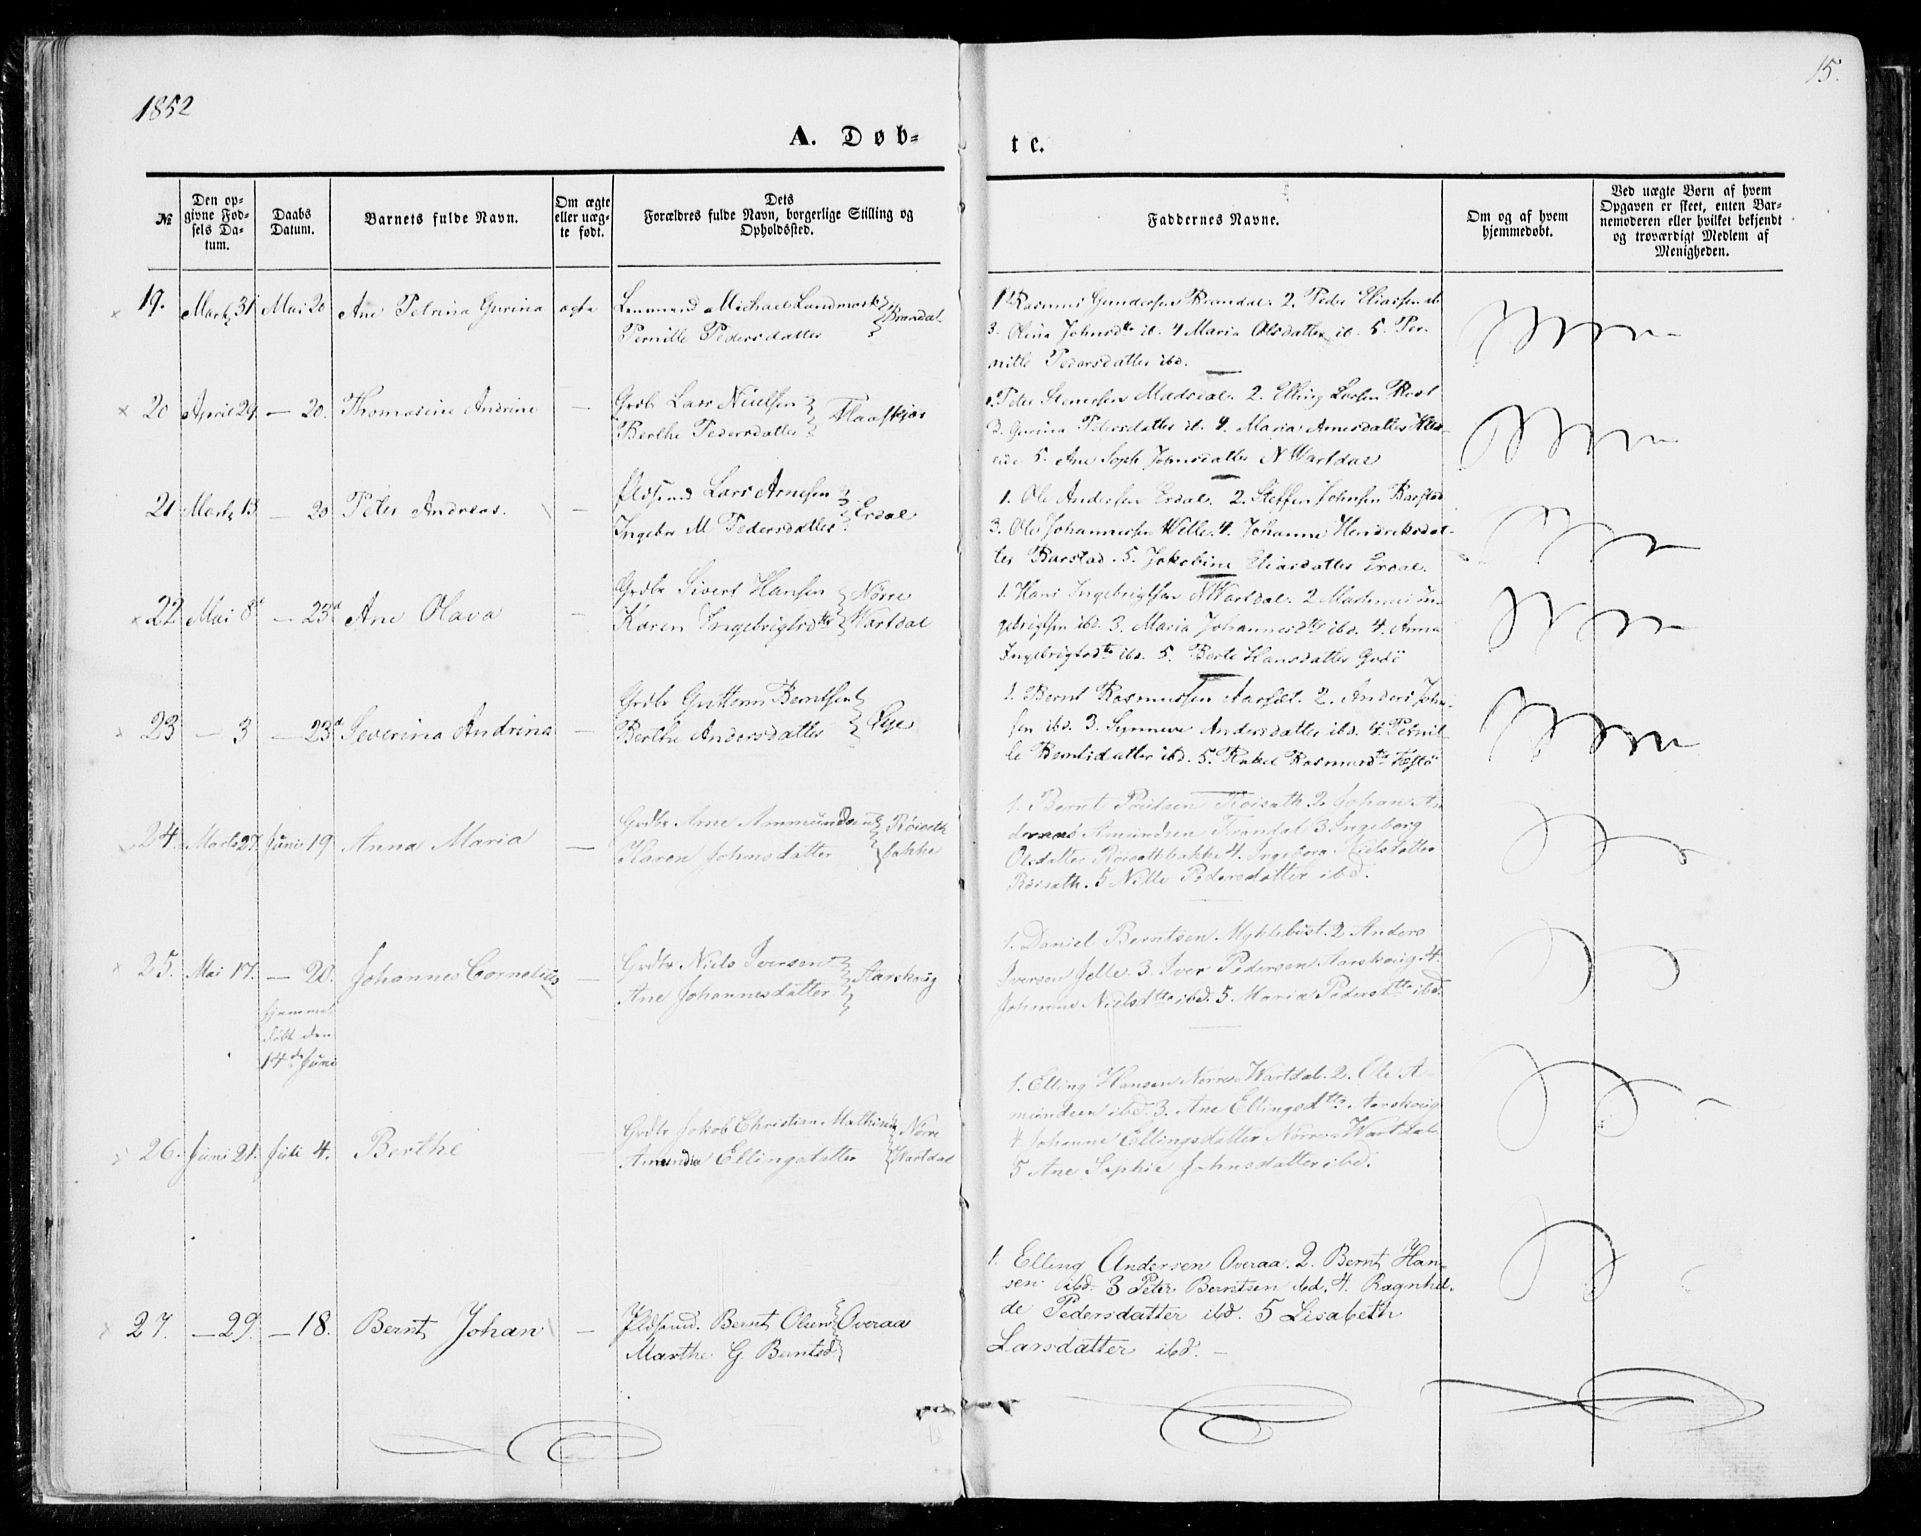 1852
15.
A. Døb-
te.
№
Den op-
givne Fød-
sels Da-
tum.
Daabs
Datum.
Barnets fulde Navn.
Om ægte
eller uæg-
te født.
Dets
Forældres fulde Navn, borgerlige Stilling og
Opholdssted.
Faddernes Navne.
Om og af hvem
hjemmedøbt.
Ved uægte Børn af hvem
Opgaven er skeet, enten Bar-
nemoderen eller hvilket bekjendt
og troværdigt Medlem af
Menigheden.
19. Marts 31 Mai 20 Ane Petrina Gurina ægte
Michael Landmark Brandal
Pernille Pedersdatter
1. Rasmus Gundersen Brandal. 2. Peder Eliassen ib
3. Olina Johnsdtr ib. 4 Maria Olsdatter ib. 5. Per-
nille Pedersdatter ibd.
20 April 29. — 20. Thomasine Andrine —
Grdbr Lars Nielsen Flaaskjær
Berthe Pedersdatter
1. Peter Madsdal. 2. Elling Larsen
3. Gurina Pedersdatter ib. 4. Maria Arnesdatter
5. Ane Soph. Johnsdatter N Wartdal
21 Marts 13 — 20 Peter Andreas. —
Plds. Lars Arnesen Erdal
Ingebr M Pedersdatter
1. Ole Andersen Erdal. 2. Steffen Johnsen Barstad
3. Ole Johannessen Welle. 4. Johanne Hendriksdat-
ter Barstad. 5. Jakobine Eliasdatter Erdal.
22 Mai 8d — 23d Ane Olava —
Grdbr Sivert Hansen Nørre
Karen Ingebrigtsdtr Wartdal
1. Hans Ingebrigtsen N Wartdal. 2 In-
gebrigtsen ibd. 3. Maria Johannesdtr ibd. 4. Anna
Ingebrigtsdtr ibd. 5. Berte Hansdatter Godø
23 — 3 — 23d Severina Andrina —
Grdbr Guttorm Berntsen Lye
Berthe Andersdatter
1. Bernt Rasmussen Aarset. 2. Anders John-
sen ibd. 3. Synneve Andersdatter ibd. 4. Pernil-
le Berntsdatter ibd. 5. Rakel Rasmusdtr
24. Marts 27. Juni 19 Anna Maria —
Grdbr Arne Ammundsen Röiseth
Karen Johnsdatter bakke
1. Bernt Poulsen Röisath. 2. Johan An-
dreas Amundsen Trandal 3. Ingeborg
Olsdatter Röisathbakke 4. Ingeborg Nielsdatter
Röisath. 5 Nille Pedersdatter ibd.
25. Mai 17. — 20. Johannes Cornelius —
Hjemme
døbt den
14de Juni
Grdbr Niels Iversen Aarskoug
Ane Johannesdatter
1. Daniel Berntsen Myklebust. 2 Anders
Iversen Jelle. 3. Iver Pedersen Aarskoug. 4.
Johanne Nielsdtr ibd. 5. Maria Pedersdtr ibd.
26. Juni 21. Juli 4. Berthe
Grdbr Jakob Christian Mathisen Nörre
Amundia Ellingsdatter Wartdal
1. Elling Hansen Nörre Wartdal. 2. Ole A-
mundsen ibd. 3. Ane Ellingsdtr Aarskoug
4 Johanne Ellingsdatter Nörre Wartdal
5 Ane Sophie Johnsdatter ibd.
27. — 29. — 18. Bernt Johan —
Pldsmd. Bernt Olsen Overaa
Marthe G. Berntsd
1. Elling Andersen Overaa. 2. Bernt Han-
sen ibd. 3 Peter Berntsen ibd. 4. Ragnhil-
de Pedersdatter ibd. 5 Lisabeth
Larsdatter ibd. —